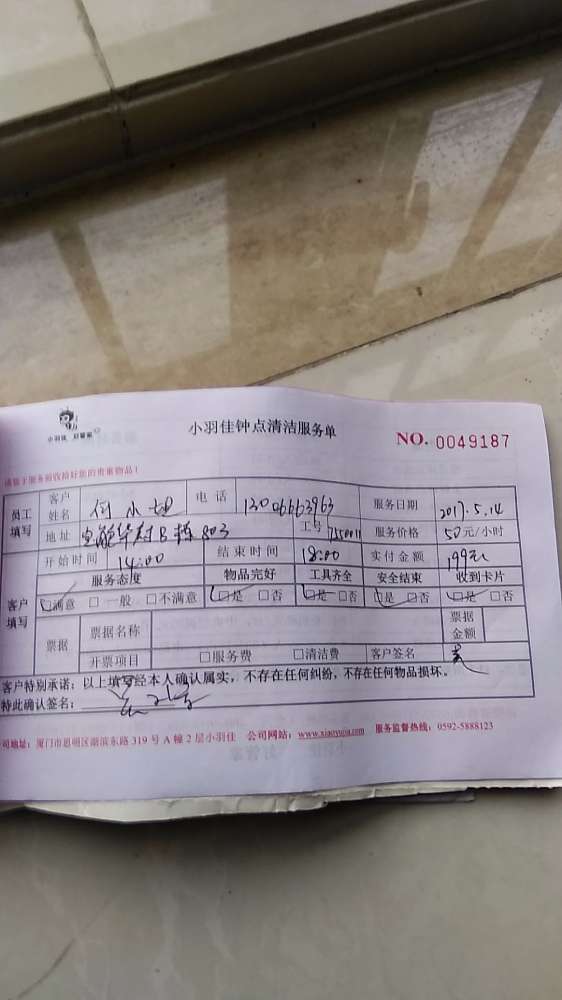 小羽佳 好管家
小羽佳钟点清洁服务单
NO. 0049187
请您于服务前收拾好您的贵重物品!
员工填写 客户姓名 何小姐 电话 13006663963 服务日期 2017.5.14
地址 B栋803 工号 服务价格 50元/小时
开始时间 14:00 结束时间 18:00 实付金额 199元
客户填写 服务态度 物品完好 工具齐全 安全结束 收到卡片
☑满意 □一般 □不满意 ☑是 □否 ☑是 □否 ☑是 □否 ☑是 □否
票据 票据名称 票据金额
开票项目 □服务费 □清洁费 客户签名
客户特别承诺:以上填写经本人确认属实,不存在任何纠纷,不存在任何物品损坏。
特此确认签名:
公司地址:厦门市思明区湖滨东路319号A幢2层小羽佳 公司网站:www.xiaoyujia.com 服务监督热线:0592-5888123